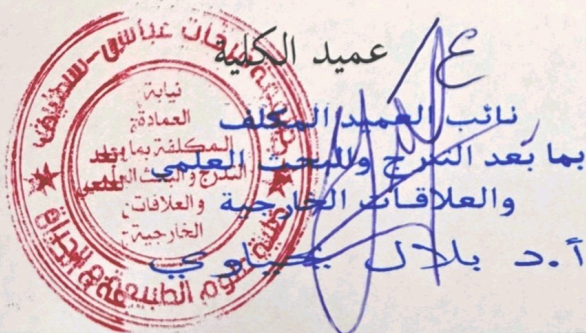 ع/ عميد الكلية
نائب العميد المكلف
بما بعد التدرج والبحث العلمي
والعلاقات الخارجية
أ.د بلال
فرحات عباس - سطيف
نيابة
العمادة
المكلفة بما بعد
التدرج والبحث العلمي
والعلاقات
الخارجية
كلية علوم الطبيعة و الحياة